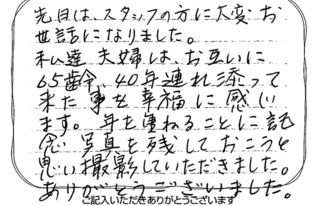 先日は、スタッフの方に大変お
世話になりました。
私達夫婦は、お互いに
65歯令、40年連れ添って
来た事を幸福に感じ
ます。年を重ねるごとに記
念写真を残しておこうと
思い撮影していただきました。
ありがとうございました。
ご記入いただきありがとうございます